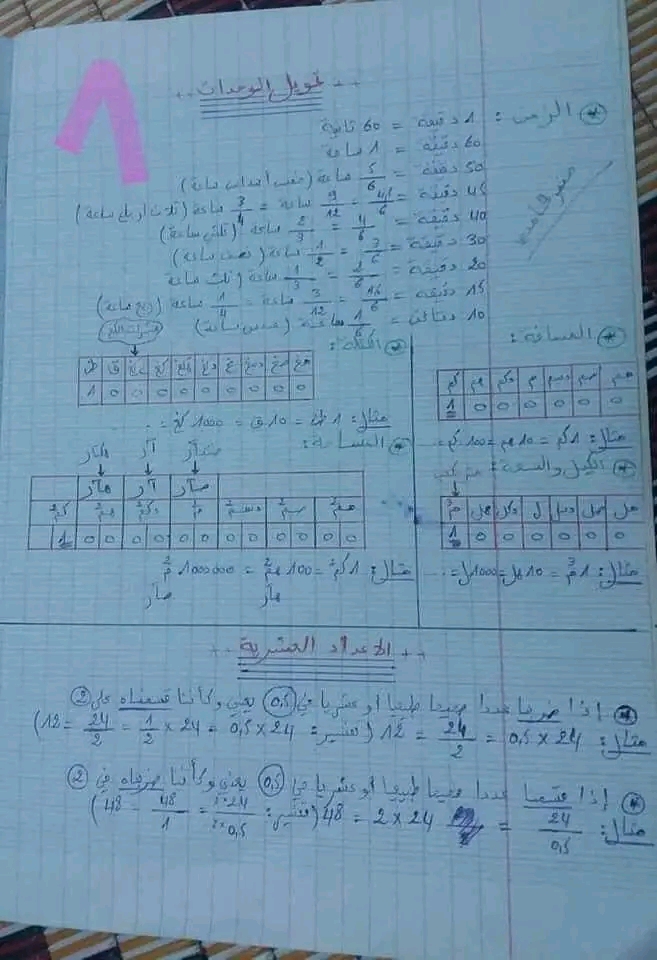 1
تحويل الوحدات
* الزمن: 1 دقيقة = 60 ثانية
60 دقيقة = 1 ساعة
50 دقيقة = 5/6 ساعة (خمس أسداس ساعة)
45 دقيقة = 4,5/6 = 9/12 ساعة = 3/4 ساعة (ثلاث أرباع ساعة)
40 دقيقة = 4/6 = 2/3 ساعة (ثلثي ساعة)
30 دقيقة = 3/6 = 1/2 ساعة (نصف ساعة)
20 دقيقة = 2/6 = 1/3 ساعة (ثلث ساعة)
15 دقيقة = 3/12 ساعة = 1/4 ساعة (ربع ساعة)
10 دقائق = 1/6 ساعة (سدس ساعة)
* المسافة:
كم هم دكم م دسم سم مم
1 0 0 0 0 0 0
مثال: 1 كم = 10 هم = 100 دكم = ..
* الكتلة:
ط ق كغ هغ دغ غ دسغ سغ مغ
1 0 0 0 0 0 0 0 0 0
مثال: 1 ط = 10 ق = 1000 كغ = ..
* الكيل والسعة: متر مكعب
م3 هل دكل ل دسل سل مل
1 0 0 0 0 0 0
مثال: 1 م3 = 10 هل = 1000 ل = ..
* المساحة:
هكتار آر سنتيآر
هآر آر صآر
كم2 هم2 دكم2 م2 دسم2 سم2 مم2
1 0 0 0 0 0 0 0 0 0 0 0 0
مثال: 1 كم2 = 100 هم2 = 1000000 م2
هآر صآر
الأعداد العشرية
* إذا ضربنا عددا صحيحا طبيعيا أو عشريا في 0,5 يعني وكأننا قسمناه على 2
مثال: 24 × 0,5 = 24/2 = 12 (تفسير: 24 × 0,5 = 24 × 1/2 = 24/2 = 12)
* إذا قسمنا عددا صحيحا طبيعيا أو عشريا في 0,5 يعني وكأننا ضربناه في 2
مثال: 24/0,5 = 24 × 2 = 48 (تفسير: 24×2/0,5×2 = 48/1 = 48)